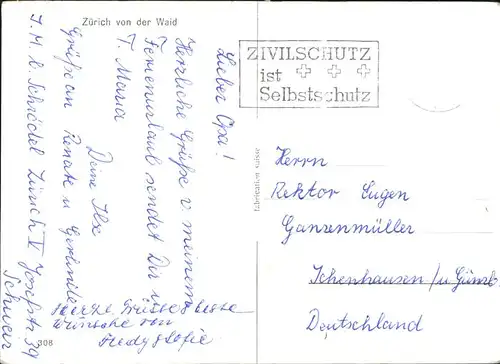 Zürich von der Waid
Lieber Opa!
Herzliche Grüße v. meinem
Ferienurlaub sendet Dir u.
T. Maria
Deine Ilse
Grüße an Renate u. Gerlinde
J. M. b. Schrödel Zürich V Josefstr. 39
Schweiz
Herzl. Grüsse & beste
Wünsche von
Fredy & Sofie
308
fabrication suisse
ZIVILSCHUTZ
ist
Selbstschutz
Herrn
Rektor Eugen
Ganzenmüller
Ichenhausen / u/Günzb.
Deutschland